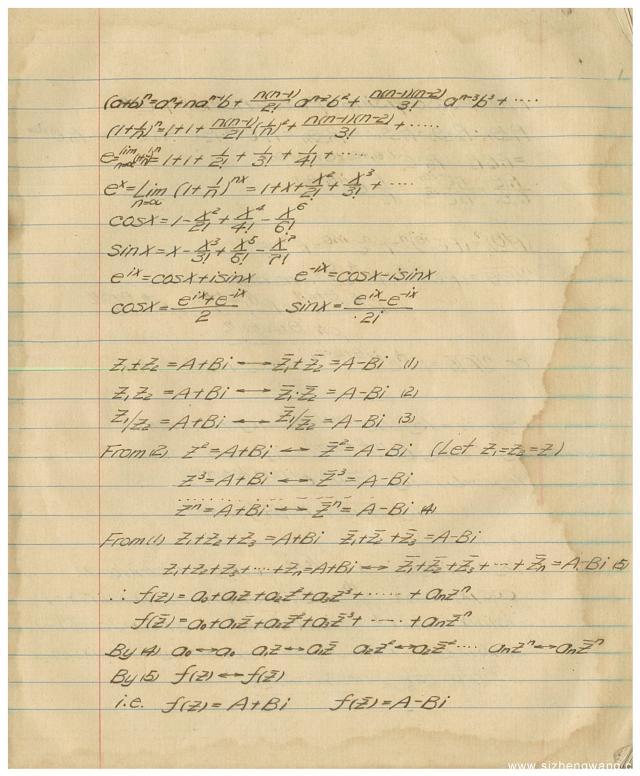 (a+b)ⁿ=aⁿ+naⁿ⁻¹b+ n(n-1)/2! aⁿ⁻²b²+ n(n-1)(n-2)/3! aⁿ⁻³b³+ ····
(1+1/n)ⁿ=1+1+ n(n-1)/2! (1/n)²+ n(n-1)(n-2)/3! + ·····
e= lim n→∞ (1+1/n)ⁿ=1+1+ 1/2! + 1/3! + 1/4! + ·····
eˣ= Lim n=∞ (1+1/n)ⁿˣ=1+x+x²/2!+x³/3!+ ····
cosx=1-x²/2!+x⁴/4!-x⁶/6!
sinx=x-x³/3!+x⁵/6!-x⁷/7!
eⁱˣ=cosx+isinx e⁻ⁱˣ=cosx-isinx
cosx= (eⁱˣ+e⁻ⁱˣ)/2 sinx= (eⁱˣ-e⁻ⁱˣ)/2i
z₁+z₂=A+Bi ⟷ z̄₁+z̄₂=A-Bi (1)
z₁z₂=A+Bi ⟷ z̄₁·z̄₂=A-Bi (2)
z₁/z₂=A+Bi ⟷ z̄₁/z̄₂=A-Bi (3)
From(2) z²=A+Bi ↔ z̄²=A-Bi (Let z₁=z₂=z)
z³=A+Bi ↔ z̄³=A-Bi
zⁿ=A+Bi ↔ z̄ⁿ=A-Bi (4)
From(1) z₁+z₂+z₃=A+Bi z̄₁+z̄₂+z̄₃=A-Bi
z₁+z₂+z₃+····+zₙ=A+Bi ↔ z̄₁+z̄₂+z̄₃+···+z̄ₙ=A-Bi (5)
∴ f(z)=a₀+a₁z+a₂z²+a₃z³+ ····· + aₙzⁿ
f(z̄)=a₀+a₁z̄+a₂z̄²+a₃z̄³+ ····· + aₙz̄ⁿ
By (4) a₀↔a₀ a₁z↔a₁z̄ a₂z²↔a₂z̄² ···· aₙzⁿ↔aₙz̄ⁿ
By (5) f(z)↔f(z̄)
i.e. f(z)=A+Bi f(z̄)=A-Bi
www.sizhengwang.c